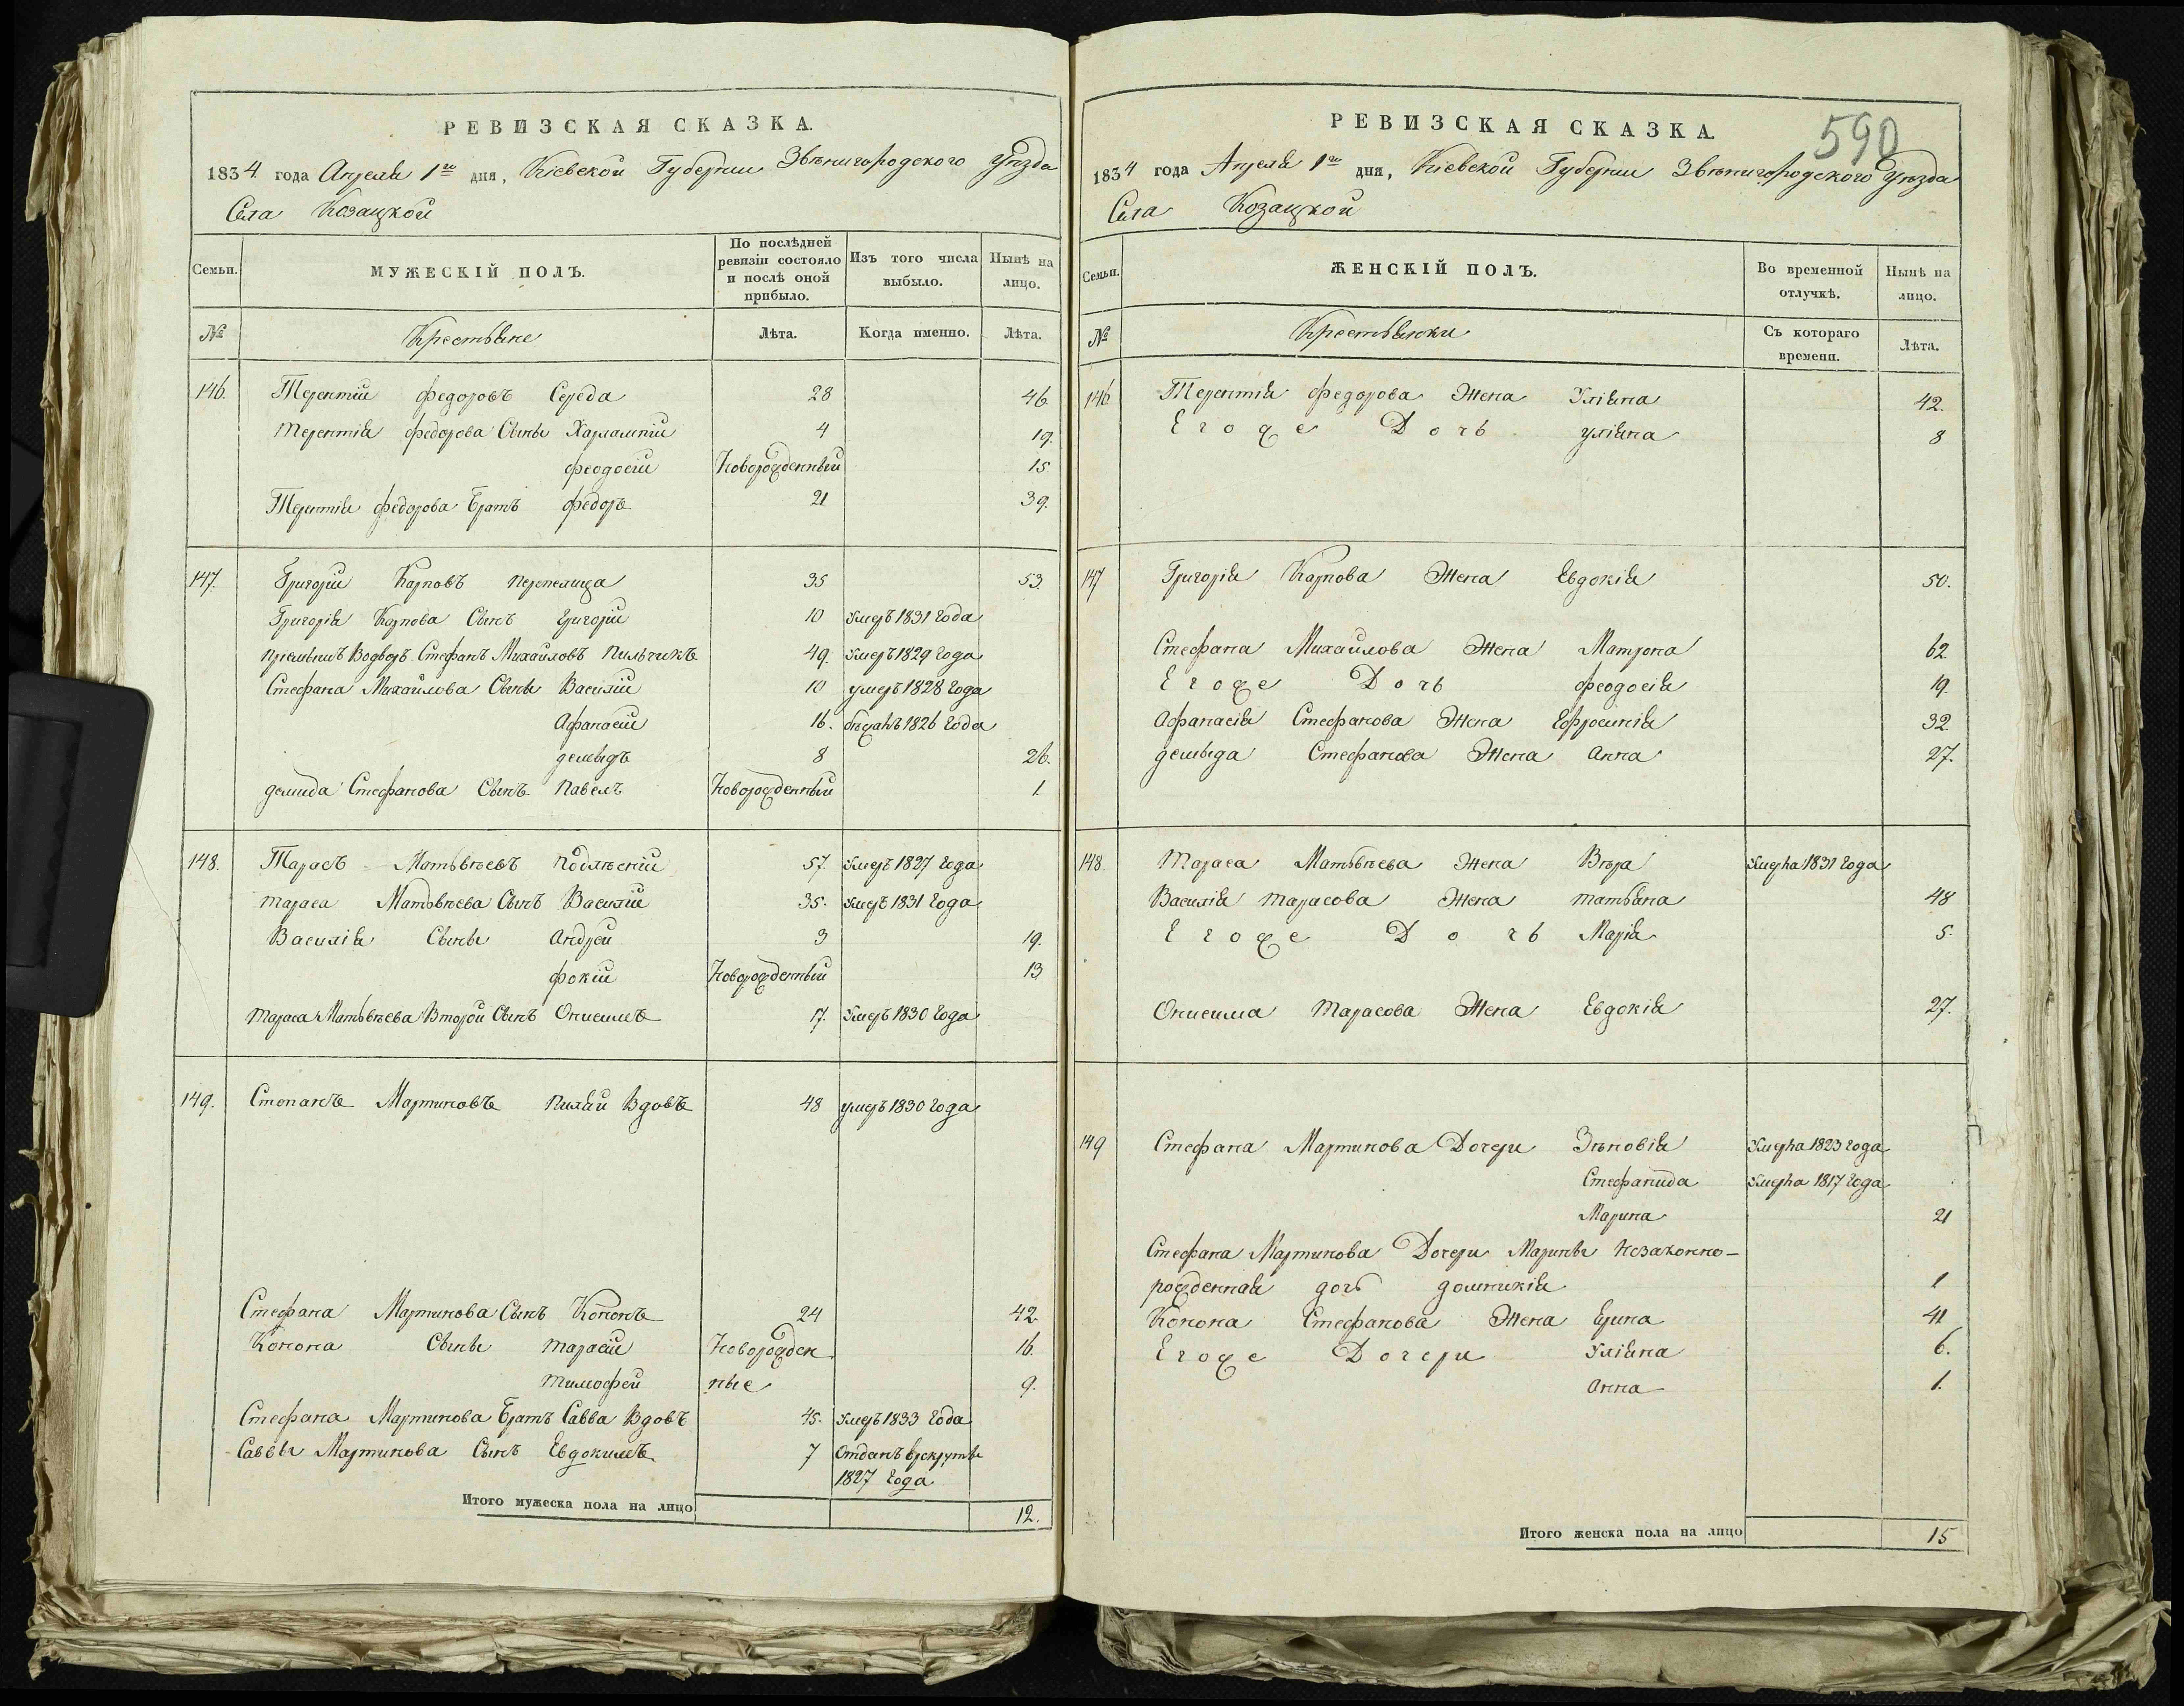 РЕВИЗСКАЯ СКАЗКА.
1834 года Апреля 1го дня, Кіевской Губернии Звѣнигородского Уѣзда
Села Козацкой
Семьи. МУЖЕСКІЙ ПОЛЪ. По послѣдней ревизіи состояло и послѣ оной прибыло. Изъ того числа выбыло. Нынѣ на лицо.
№ Крестьяне Лѣта. Когда именно. Лѣта.
146. Терентий Федоровъ Середа 28 46
Терентія Федорова Сыны Харлампий 4 19.
Феодосий Новорожденный 15
Терентія Федорова Братъ Федоръ 21 39.
147. Григорий Карповъ Перепелица 35 53.
Григорія Карпова Сынъ Григорий 10 умеръ 1831 года
Приемышъ Водворъ Стефанъ Михайловъ Пильчикъ 49. умеръ 1829 года
Стефана Михайлова Сыны Василий 10 умеръ 1828 года
Афанасий 16. бѣжалъ 1826 года
Демыдъ 8 26.
Демида Стефанова Сынъ Павелъ Новорожденный 1.
148. Тарасъ Матвѣевъ Подлѣский 57. умеръ 1827 года
Тараса Матвѣева Сынъ Василий 35. умеръ 1831 года
Василія Сыны Андрей 3 19.
Фокий Новорожденный 13
Тараса Матвѣева Второй Сынъ Онисимъ 17. умеръ 1830 года
149. Стопанъ Мартиновъ Пиляй Вдовъ 48 умеръ 1830 года
Стефана Мартинова Сынъ Кононъ 24 42.
Конона Сыны Тарасий Новорожден 16.
Тимофей ные 9.
Стефана Мартинова Братъ Савва Вдовъ 45. умеръ 1833 года
Саввы Мартинова Сынъ Евдокимъ 7 Отданъ врекруты
1827 года
Итого мужеска пола на лицо 12.
590
РЕВИЗСКАЯ СКАЗКА.
1834 года Апреля 1го дня, Кіевской Губернии Звѣнигородского Уѣзда
Села Козацкой
Семьи. ЖЕНСКІЙ ПОЛЪ. Во временной отлучкѣ. Нынѣ на лицо.
№ Крестьянки Съ котораго времени. Лѣта.
146 Терентія Федорова Жена Уліяна 42.
Егоже Дочь Уліяна 8
147 Григорія Карпова Жена Евдокія 50.
Стефана Михайлова Жена Матрона 62
Егоже Дочь Феодосія 19.
Афанасія Стефанова Жена Ефросинія 32.
Демыда Стефанова Жена Анна 27.
148. Тараса Матвѣева Жена Вѣра умерла 1831 года
Василія Тарасова Жена Татьяна 48
Егоже Дочь Марія 5.
Онисима Тарасова Жена Евдокія 27.
149 Стефана Мартинова Дочери Зѣновія умерла 1823 года
Стефанида умерла 1817 года
Марина 21
Стефана Мартинова Дочери Марины незаконно-
рожденная дочь Домникія 1
Конона Стефанова Жена Ерина 41
Егоже Дочери Уліяна 6.
Анна 1.
Итого женска пола на лицо 15